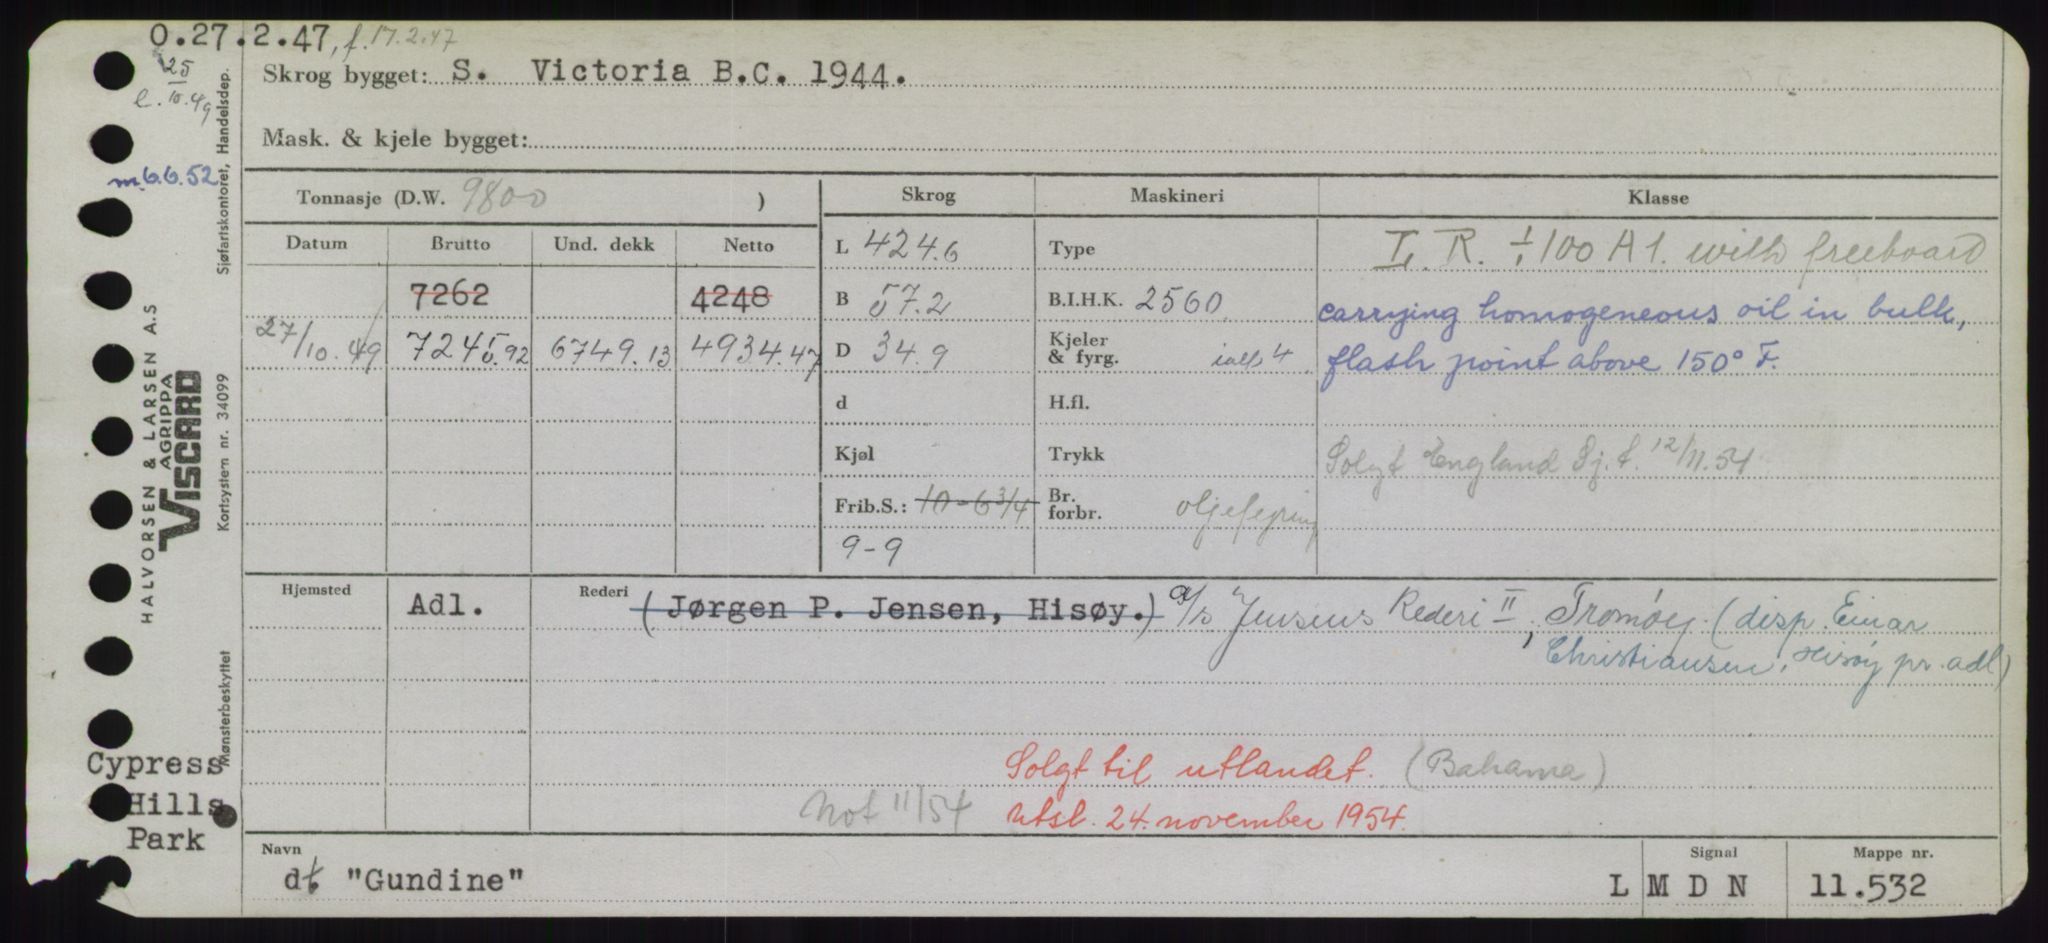 O.27.2.47, f. 17.2.47
25
e. 10.49
m. 6.6.52
Skrog bygget: S. Victoria B.C. 1944.
Mask. & kjele bygget:
Tonnasje (D.W. 9800 )
Skrog
Maskineri
Klasse
Datum Brutto Und. dekk Netto
7262 4248
27/10.49 7245.92 6749.13 4934.47
L 424.6
B 57.2
D 34.9
d
Kjøl
Frib.S.: 10-6 3/4
9-9
Type
B.I.H.K. 2560
Kjeler
& fyrg. ialt 4
H.fl.
Trykk
Br.
forbr. oljefyring
L.R. + 100 A1. with freeboard
carrying homogeneous oil in bulk,
flash point above 150° F.
Solgt England Sj.t. 12/11.54
Hjemsted Adl.
Rederi (Jørgen P. Jensen, Hisøy.) a/s Jensens Rederi II, Tromøy. (disp. Einar
Christiansen, Hisøy pr. adl)
Solgt til utlandet. (Bahama)
Not 11/54 utsl. 24. november 1954.
Navn
d/t "Gundine"
Signal
L M D N
Mappe nr.
11.532
Sjøfartskontoret, Handelsdep.
HALVORSEN & LARSEN A.S
AGRIPPA
VISCARD
Kortsystem nr. 34099
Mønsterbeskyttet
Cypress
Hills
Park